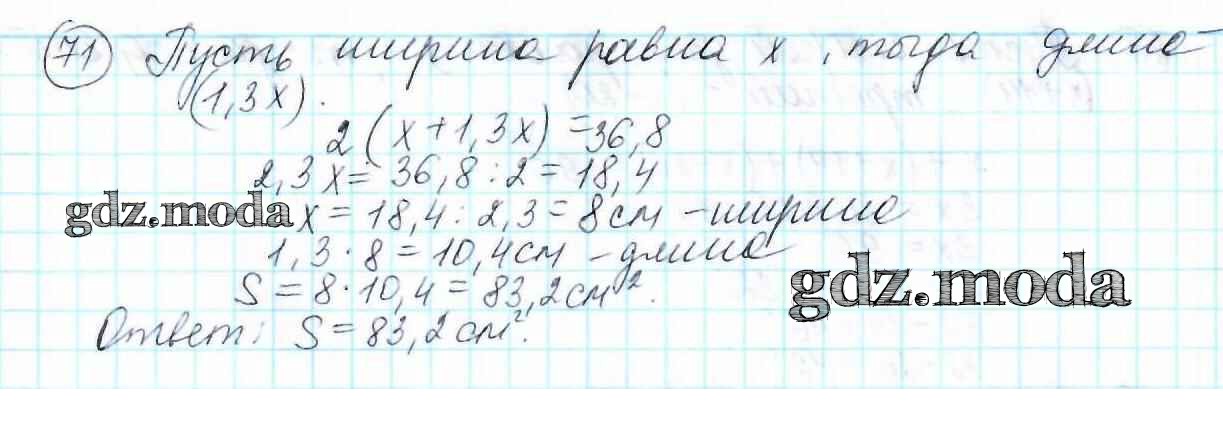 71 Пусть ширина равна x, тогда длина -
(1,3x).
2(x+1,3x)=36,8
2,3x=36,8:2=18,4
gdz.moda x=18,4:2,3=8см -ширина
1,3·8=10,4см -длина
S=8·10,4=83,2см².
gdz.moda
Ответ: S=83,2см².